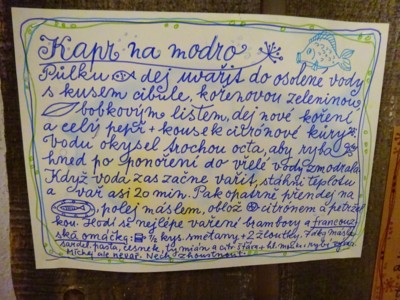 Kapr na modro
Půlku dej uvařit do osolené vody
s kusem cibule, kořenovou zeleninou,
bobkovým listem, dej nové koření
a celý pepř + kousek citrónové kůry.
Vodu okysel trochou octa, aby ryba
hned po ponoření do vřelé vody zmodrala.
Když voda zas začne vařit, stáhni teplotu
a vař asi 20 min. Pak opatrně přendej na
, polej máslem, oblož citrónem a petržel
kou. Hodí se nejlépe vařené brambory a francouz
ská omáčka: ½ kys. smetany + 2 žloutky, 7 dkg másla
sardel. pasta, česnek, tymián a citr. šťáva + hl. mouka
Míchej ale nevař. Nech zhoustnout.